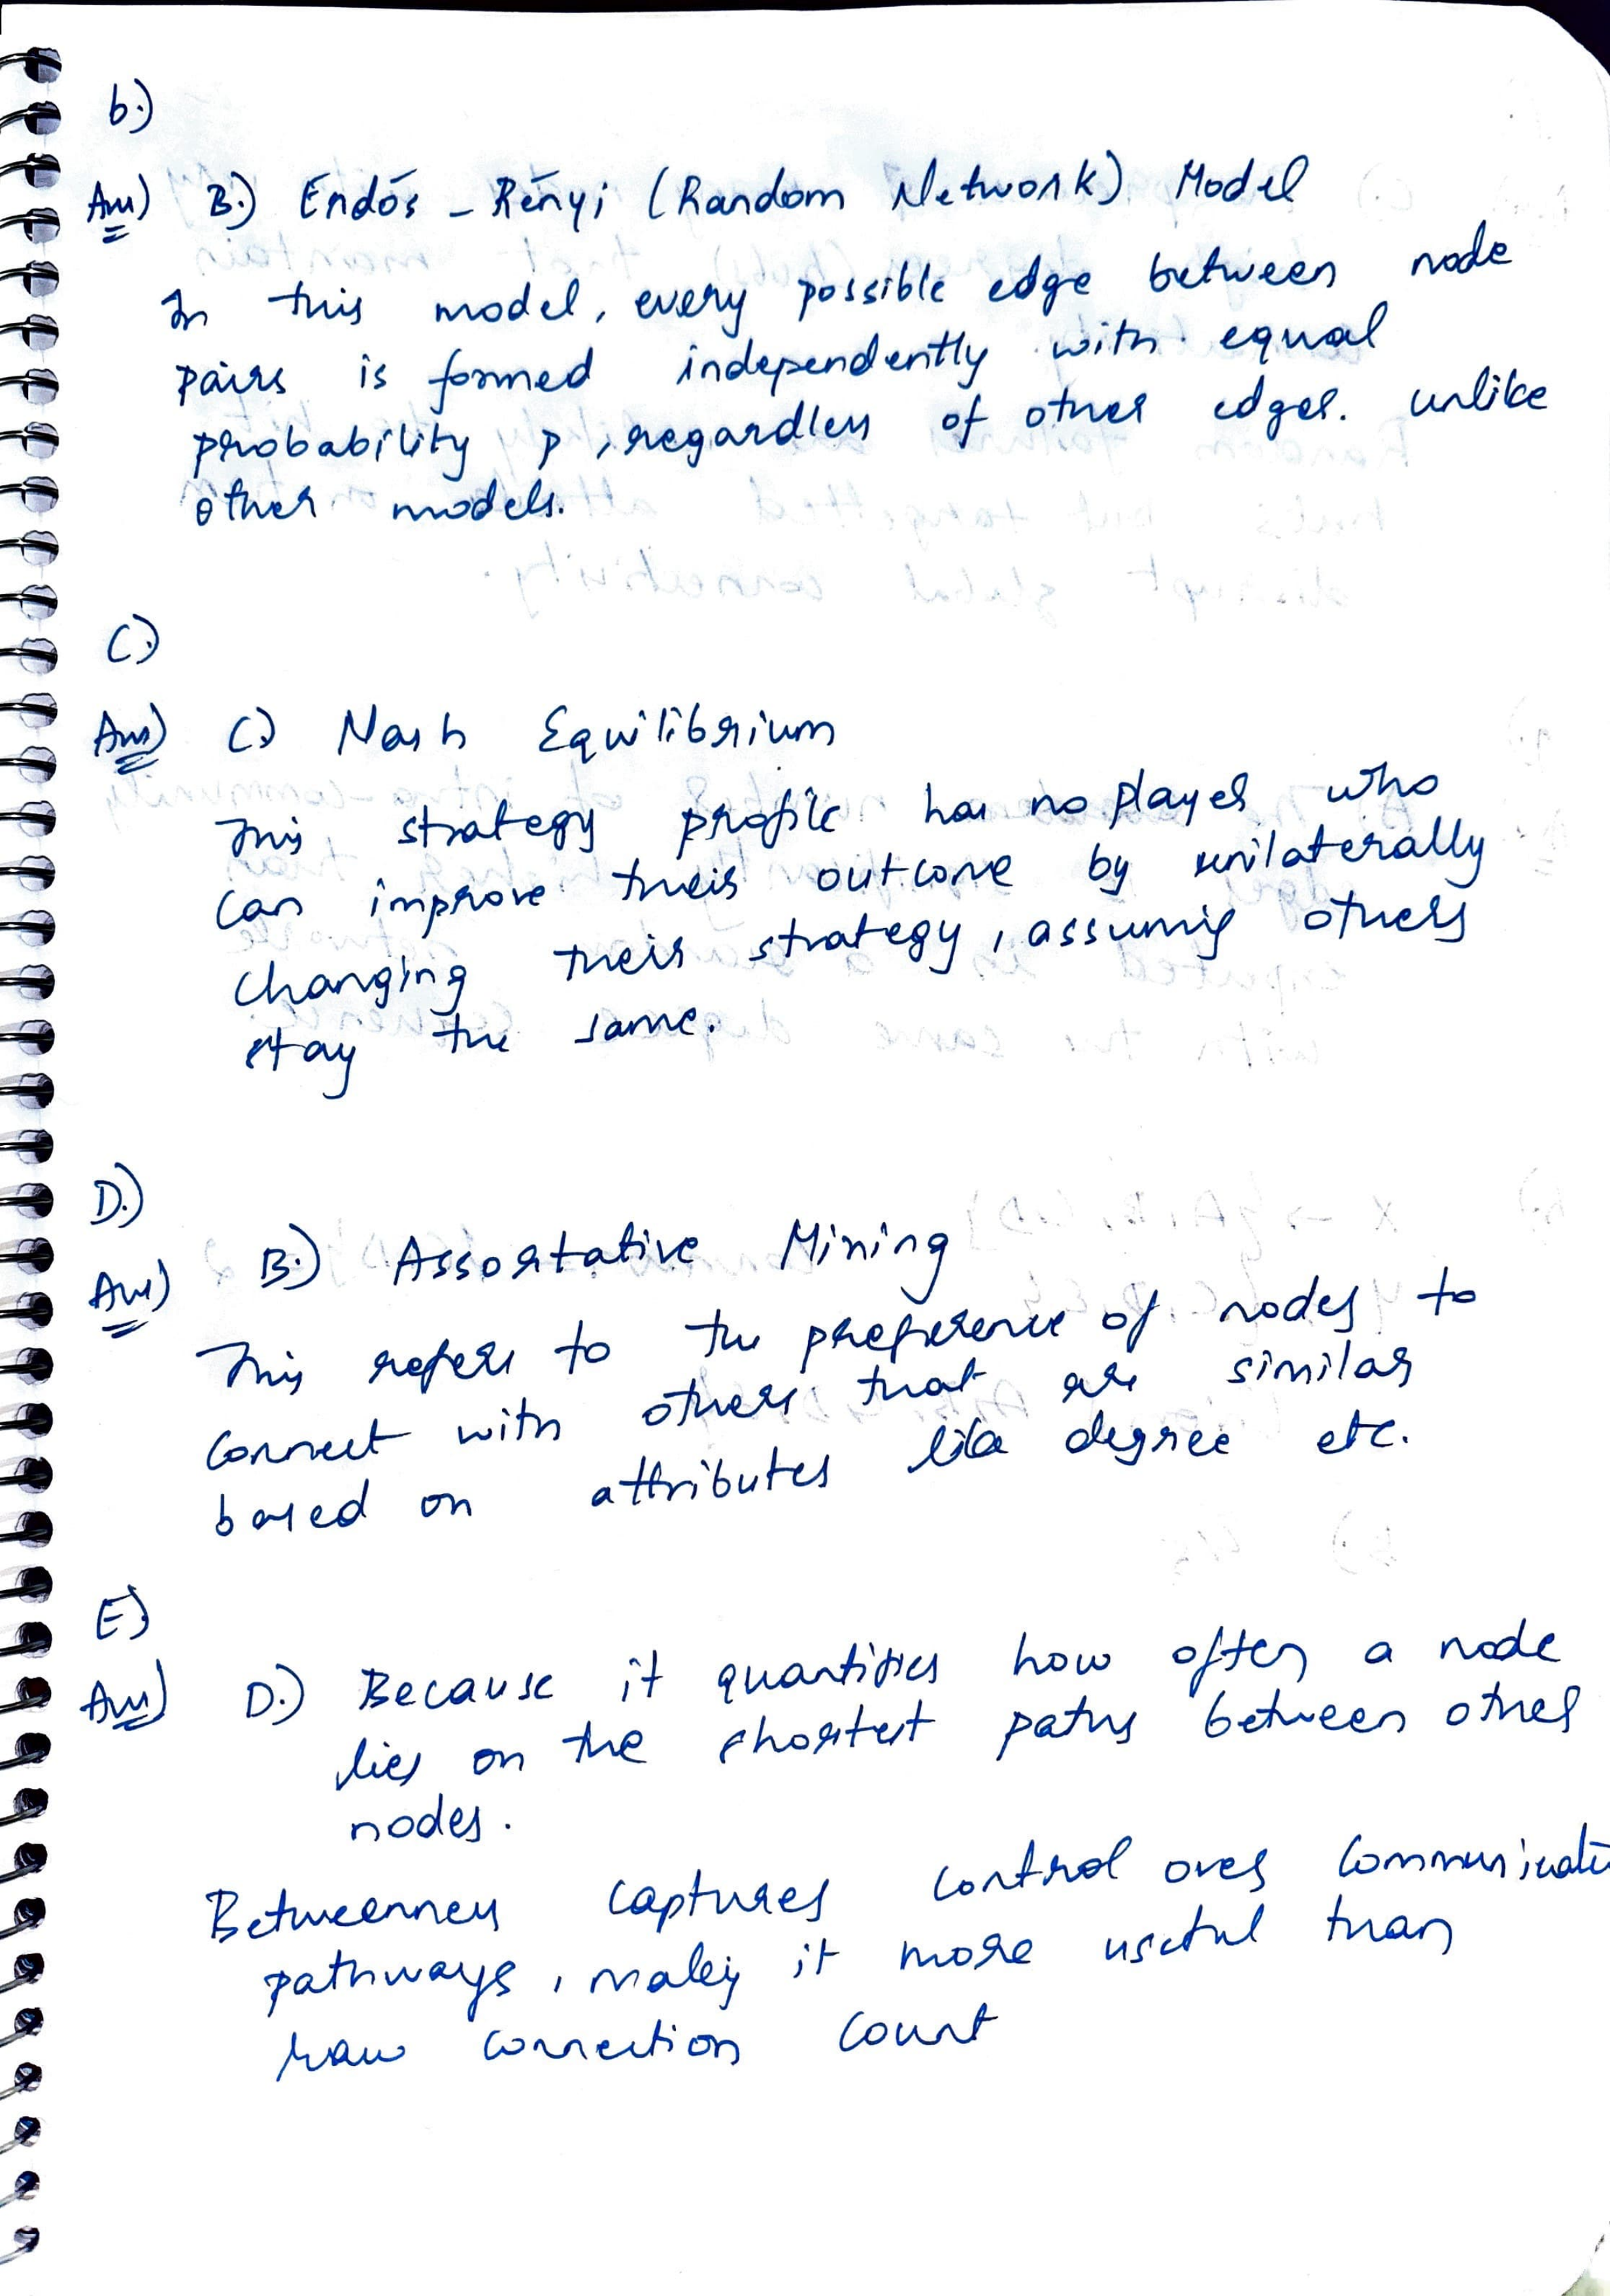 b.)
Ans) B.) Erdós - Rényi (Random Network) Model
In this model, every possible edge between node
pairs is formed independently with equal
probability p, regardless of other edges. unlike
other models.
C.)
Ans) C.) Nash Equilibrium
This strategy profile has no player who
can improve their outcome by unilaterally
changing their strategy, assuming others
stay the same.
D.)
Ans) B.) Assortative Mixing
This refers to the preference of nodes to
connect with others that are similar
based on attributes like degree etc.
E)
Ans) D.) Because it quantifies how often a node
lies on the shortest paths between other
nodes.
Betweenness captures control over communicati
pathways, making it more useful than
raw connection count